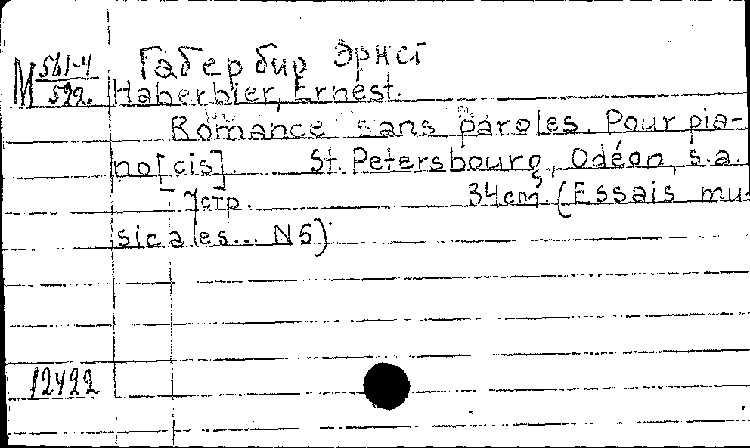 М 561-4/592. Габербир Эрнст
Haberbier, Ernest.
Romance sans paroles. Pour pia-
no [cis]. St. Petersbourg, Odéon, s.a.
7стр. 34cm (Essais mu-
sicales... N5)
12422